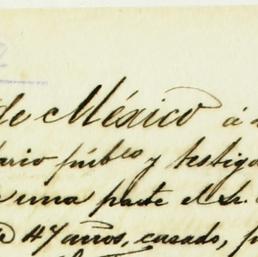 de México á
ario púbco y testig
una parte el Sr.
47 años, casado,